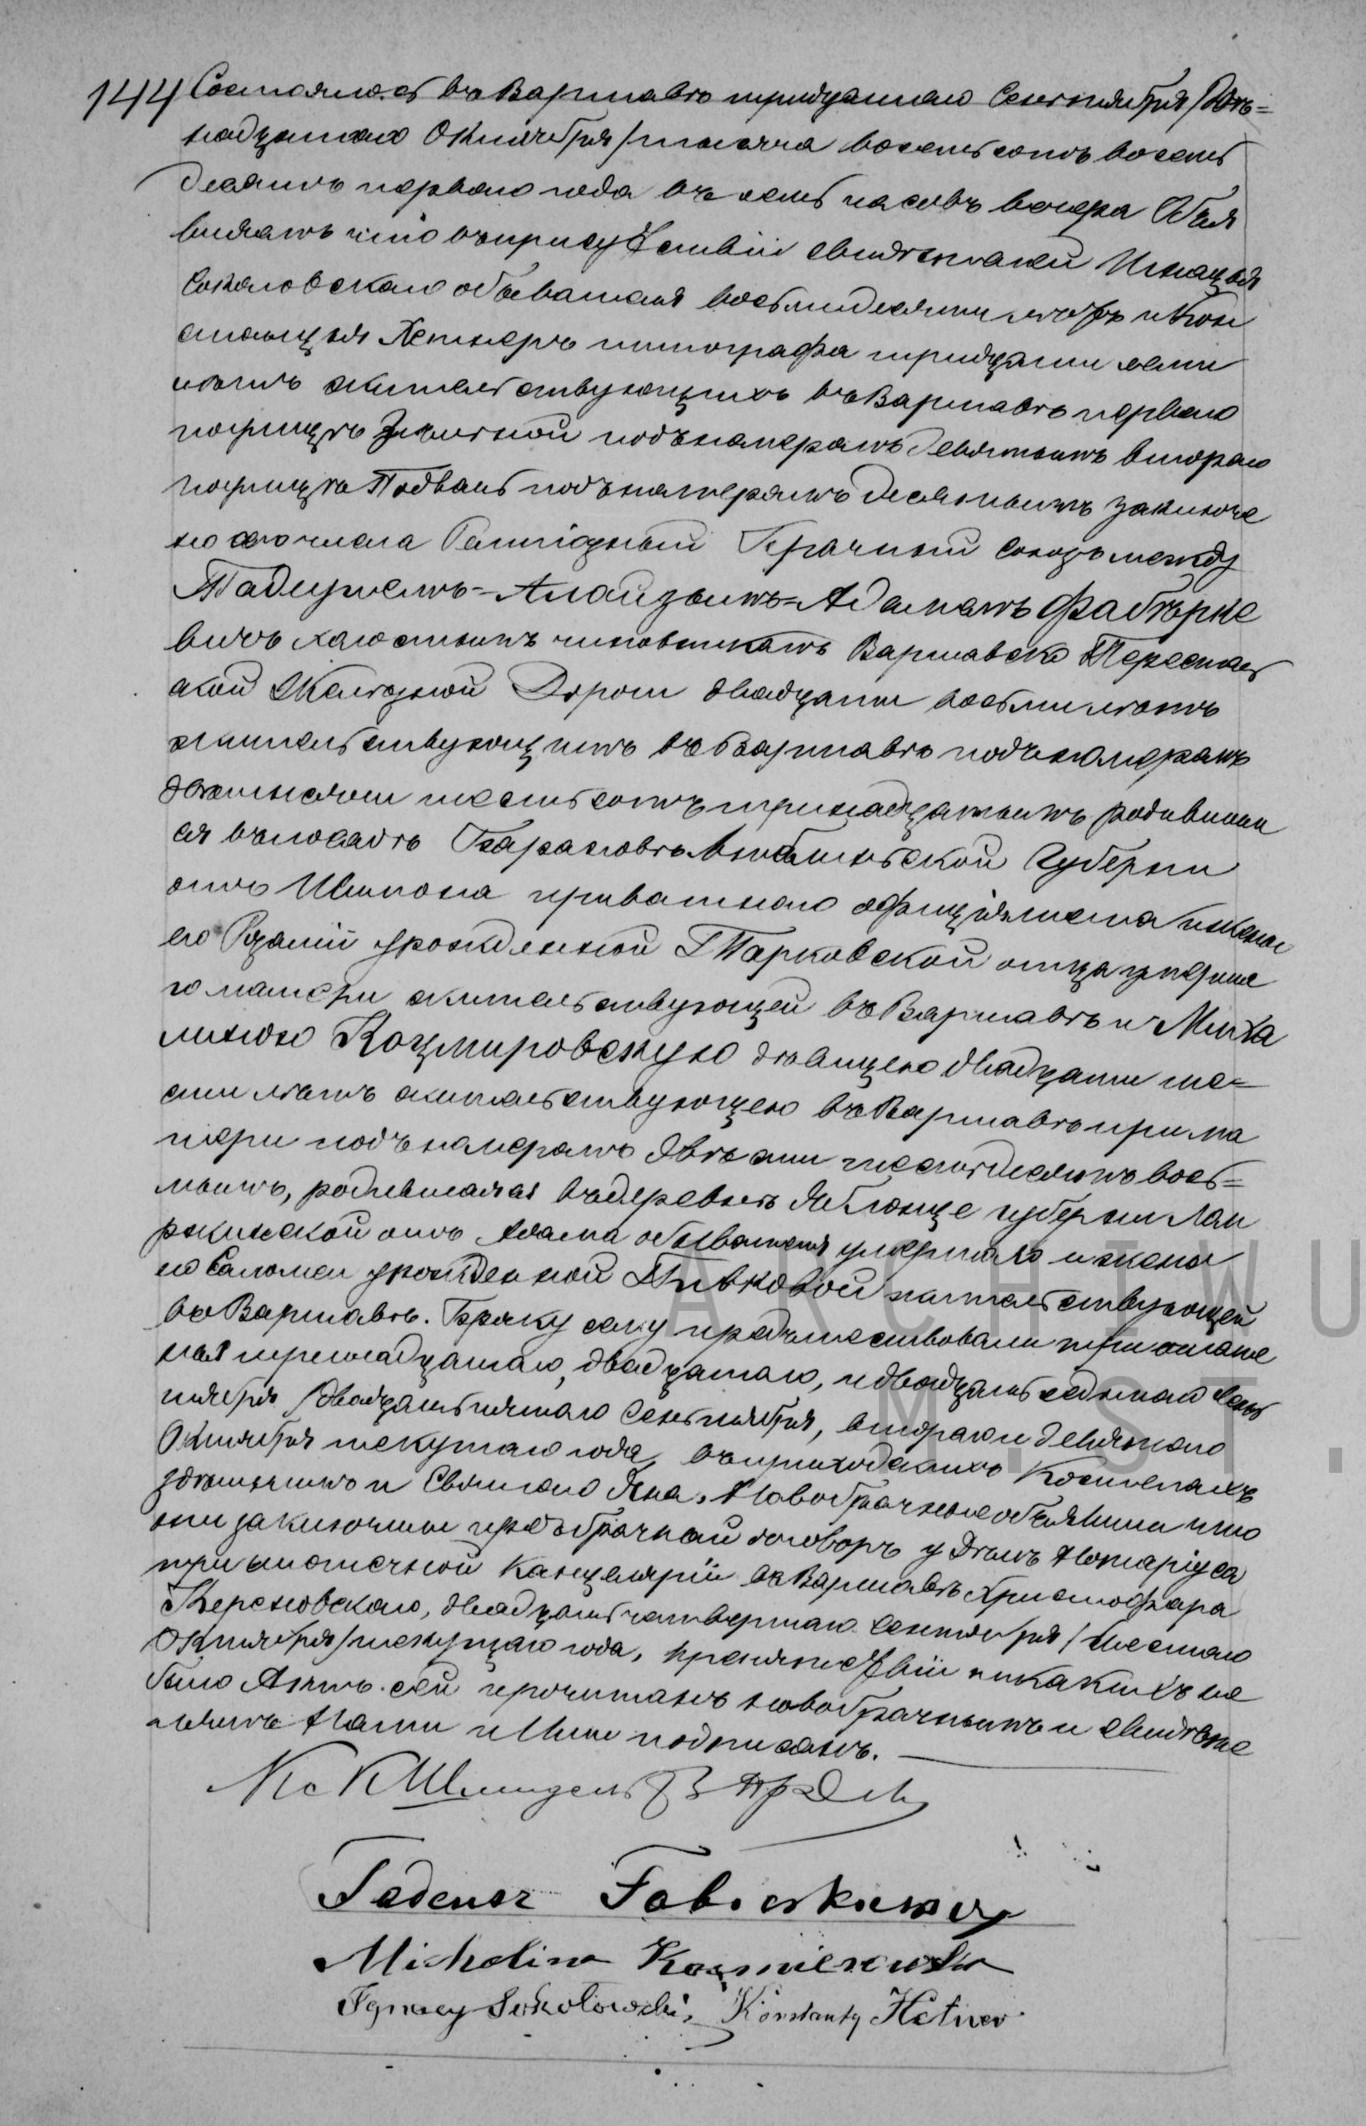 144 Состоялось въ Варшавѣ тридцатаго Сентября /двѣ=
надцатаго Октября/ тысяча восемьсотъ восемь
десятъ перваго года въ семь часовъ вечера Объя
вляемъ что въ присутствіи свидѣтелей Игнація
Соколовскаго обывателя восьмидесяти лѣтъ и Кон
станція Хетнеръ типографа тридцати семи
лѣтъ жительствующихъ въ Варшавѣ перваго
по улицѣ подъ номеромъ девятымъ втораго
по улицѣ Подваль подъ номеромъ десятымъ заключе
но сего числа религіозный брачный союзъ между
Тадеушемъ=Алойзымъ=Адамомъ Фабѣрке
вичъ холостымъ чиновникомъ Варшавско Тереспольс
кой Желѣзной Дороги двадцати восьми лѣтъ
жительствующимъ въ Варшавѣ подъ номеромъ
двѣ тысячи шестьсотъ тринадцатымъ родившим
ся въ посадѣ Барановѣ Люблинской Губерніи
отъ Шимона приватнаго оффиціялиста и жены
его урожденной Тарковской отца умерше
го матери жительствующей въ Варшавѣ и Миха
линою Кацмировскую дѣвицею двадцати ше=
сти лѣтъ жительствующею въ Варшавѣ при ма
тери подъ номеромъ двѣсти шестьдесятъ вось=
мымъ, родившаяся въ деревнѣ Яблонце губерніи Лом
ржинской отъ Адама обывателя умершаго и жены
его Саломеи урожденной Пивковой жительствующей
въ Варшавѣ. Браку сему предшествовали три оглаше
нія тринадцатаго, двадцатаго, и двадцать седьмаго Сен
тября /двадцать пятаго Сентября, втораго и девятаго
Октября текущаго года, въ приходскихъ Костелахъ
здѣшнемъ и Святаго Яна. Новобрачные объявили что
они заключили предъбрачный договоръ у Дѣлъ Нотаріуса
при ипотечной Канцеляріи въ Варшавѣ Христофора
двадцать четвертаго Сентября /шестаго
Октября/ текущаго года, препятствій никакихъ не
было Актъ сей прочитанъ новобрачнымъ и свидѣте
лямъ Нами и Ими подписанъ. —
Кс К
Tadeusz Fabierkiewicz
Michalina Kacmierowska
Ignacy Sokołowski, Konstanty Hetner
ARCHIWU
M.ST.